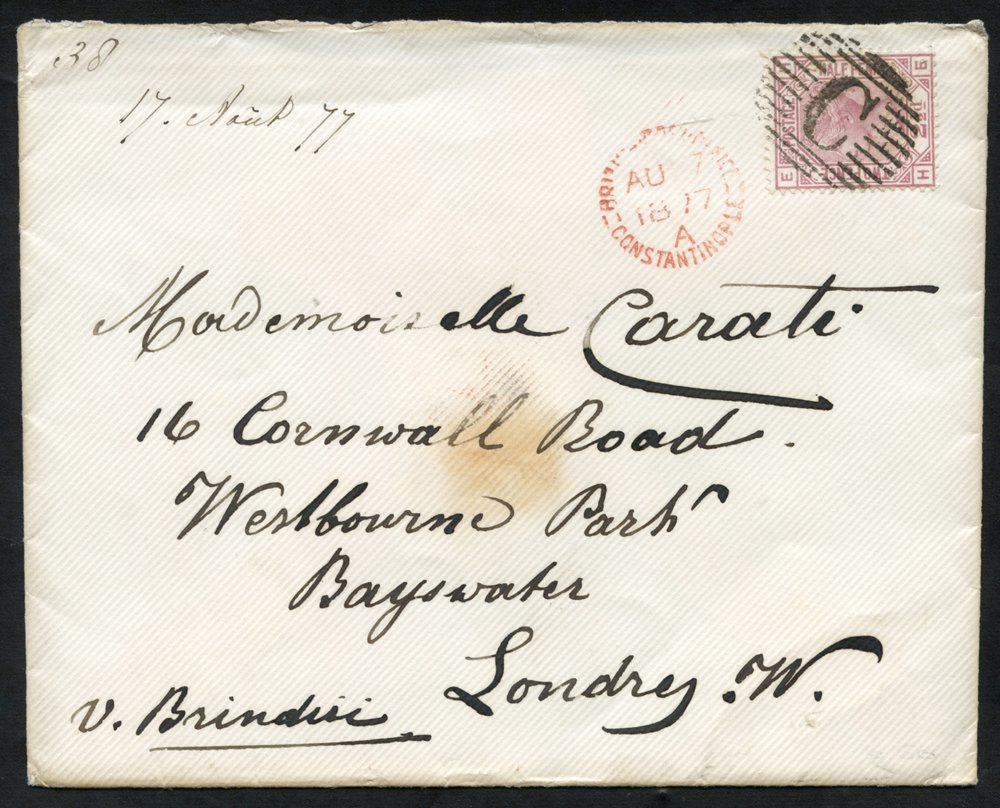 38
17. Août 77
BRITISH POST OFFICE
AU 17
18 77
A
CONSTANTINOPLE
POSTAGE
HALF
2½d
C
E H
Mademoiselle Carati
16 Cornwall Road.
Westbourne Park
Bayswater
Londres W.
v. Brindisi